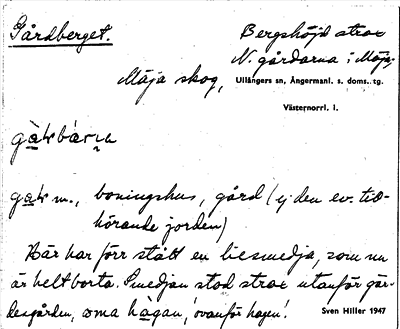 Gårdberget.
Bergshöjd strax
N. gårdarna i Mäja;
Mäja skog,
Ullångers sn, Ångermanl. s. doms. tg.
Västernorrl. l.
m., boningshus, gård (ej den ev. till-
hörande jorden)
Här har förr stått en liesmedja, som nu
är helt borta. Smedjan stod strax utanför går-
desgården, ɔma hägan, 'ovanför hagen'.
Sven Hiller 1947